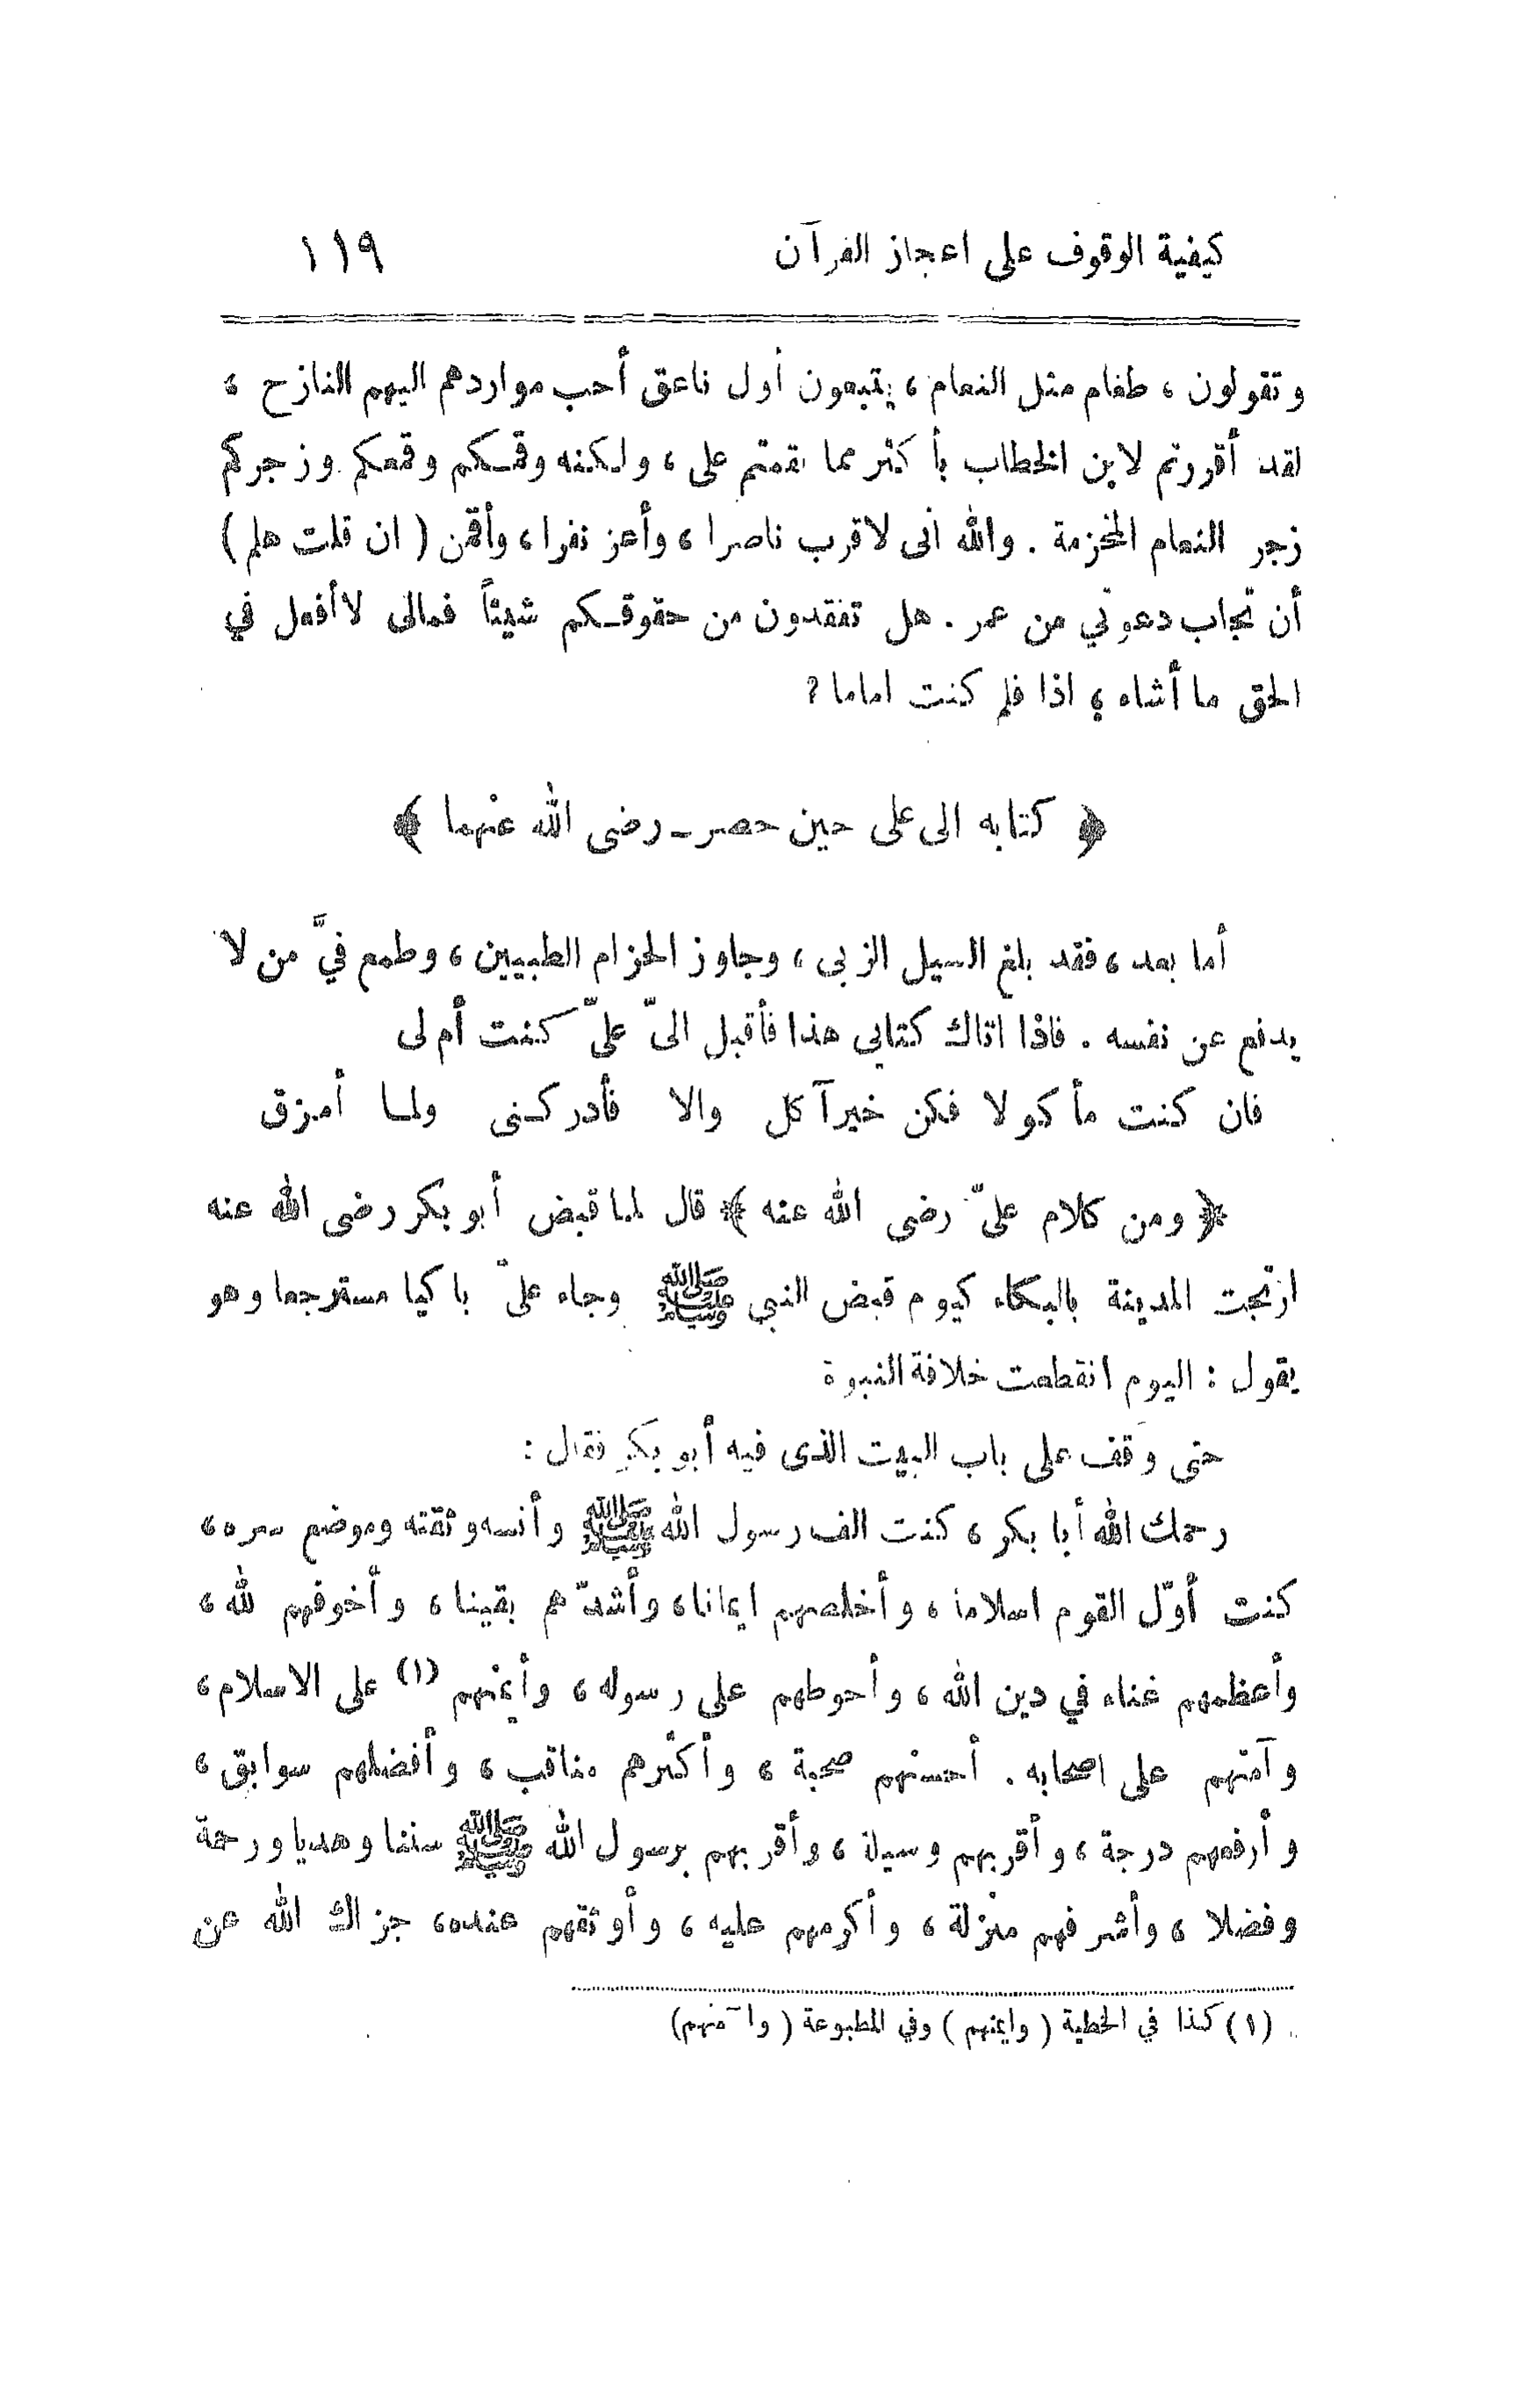 كيفية الوقوف على اعجاز القرآن ١١٩
وتقولون ، طغام مثل النعام ، يتبعون أول ناعق أحب مواردهم اليهم النازح ،
لقد أقررتم لابن الخطاب بأكثر مما نقمتم على ، ولكنه وقمكم وقمعكم وزجركم
زجر النعام المخزمة . والله انى لاقرب ناصرا ، وأعز نفرا ، وأقمن ( ان قلت هلم )
أن تجاب دعوتي من عمر . هل تفقدون من حقوقكم شيئاً فمالى لا أفعل في
الحق ما أشاء ؟ اذا فلم كنت اماما ؟
﴿ كتابه الى على حين حصر ـ رضى الله عنهما ﴾
أما بعد ، فقد بلغ السيل الزبى ، وجاوز الحزام الطبيين ، وطمع فيَّ من لا
يدفع عن نفسه . فاذا اتاك كتابى هذا فأقبل الىّ علىّ كنت أم لى
فان كنت مأكولا فكن خير آكل والا فأدركنى ولما أمزق
﴿ ومن كلام علىّ رضى الله عنه ﴾ قال لما قبض أبو بكر رضى الله عنه
ارتجت المدينة بالبكاء كيوم قبض النبي ﷺ وجاء علىّ باكيا مسترجعا وهو
يقول : اليوم انقطعت خلافة النبوة
حتى وقف على باب البيت الذى فيه أبو بكر فقال :
رحمك الله أبا بكر ، كنت الف رسول الله ﷺ وأنسه وثقته وموضع سره ،
كنت أوّل القوم اسلاما ، وأخلصهم ايمانا ، وأشدّهم يقينا ، وأخوفهم لله ،
وأعظمهم غناء في دين الله ، وأحوطهم على رسوله ، وأيمنهم (١) على الاسلام ،
وآمنهم على اصحابه . أحسنهم صحبة ، وأكثرهم مناقب ، وأفضلهم سوابق ،
وأرفعهم درجة ، وأقربهم وسيلة ، وأقربهم برسول الله ﷺ سننا وهديا ورحمة
وفضلا ، وأشرفهم منزلة ، وأكرمهم عليه ، وأوثقهم عنده ، جزاك الله عن
(١) كذا في الخطية ( وايمنهم ) وفي المطبوعة ( وآمنهم )